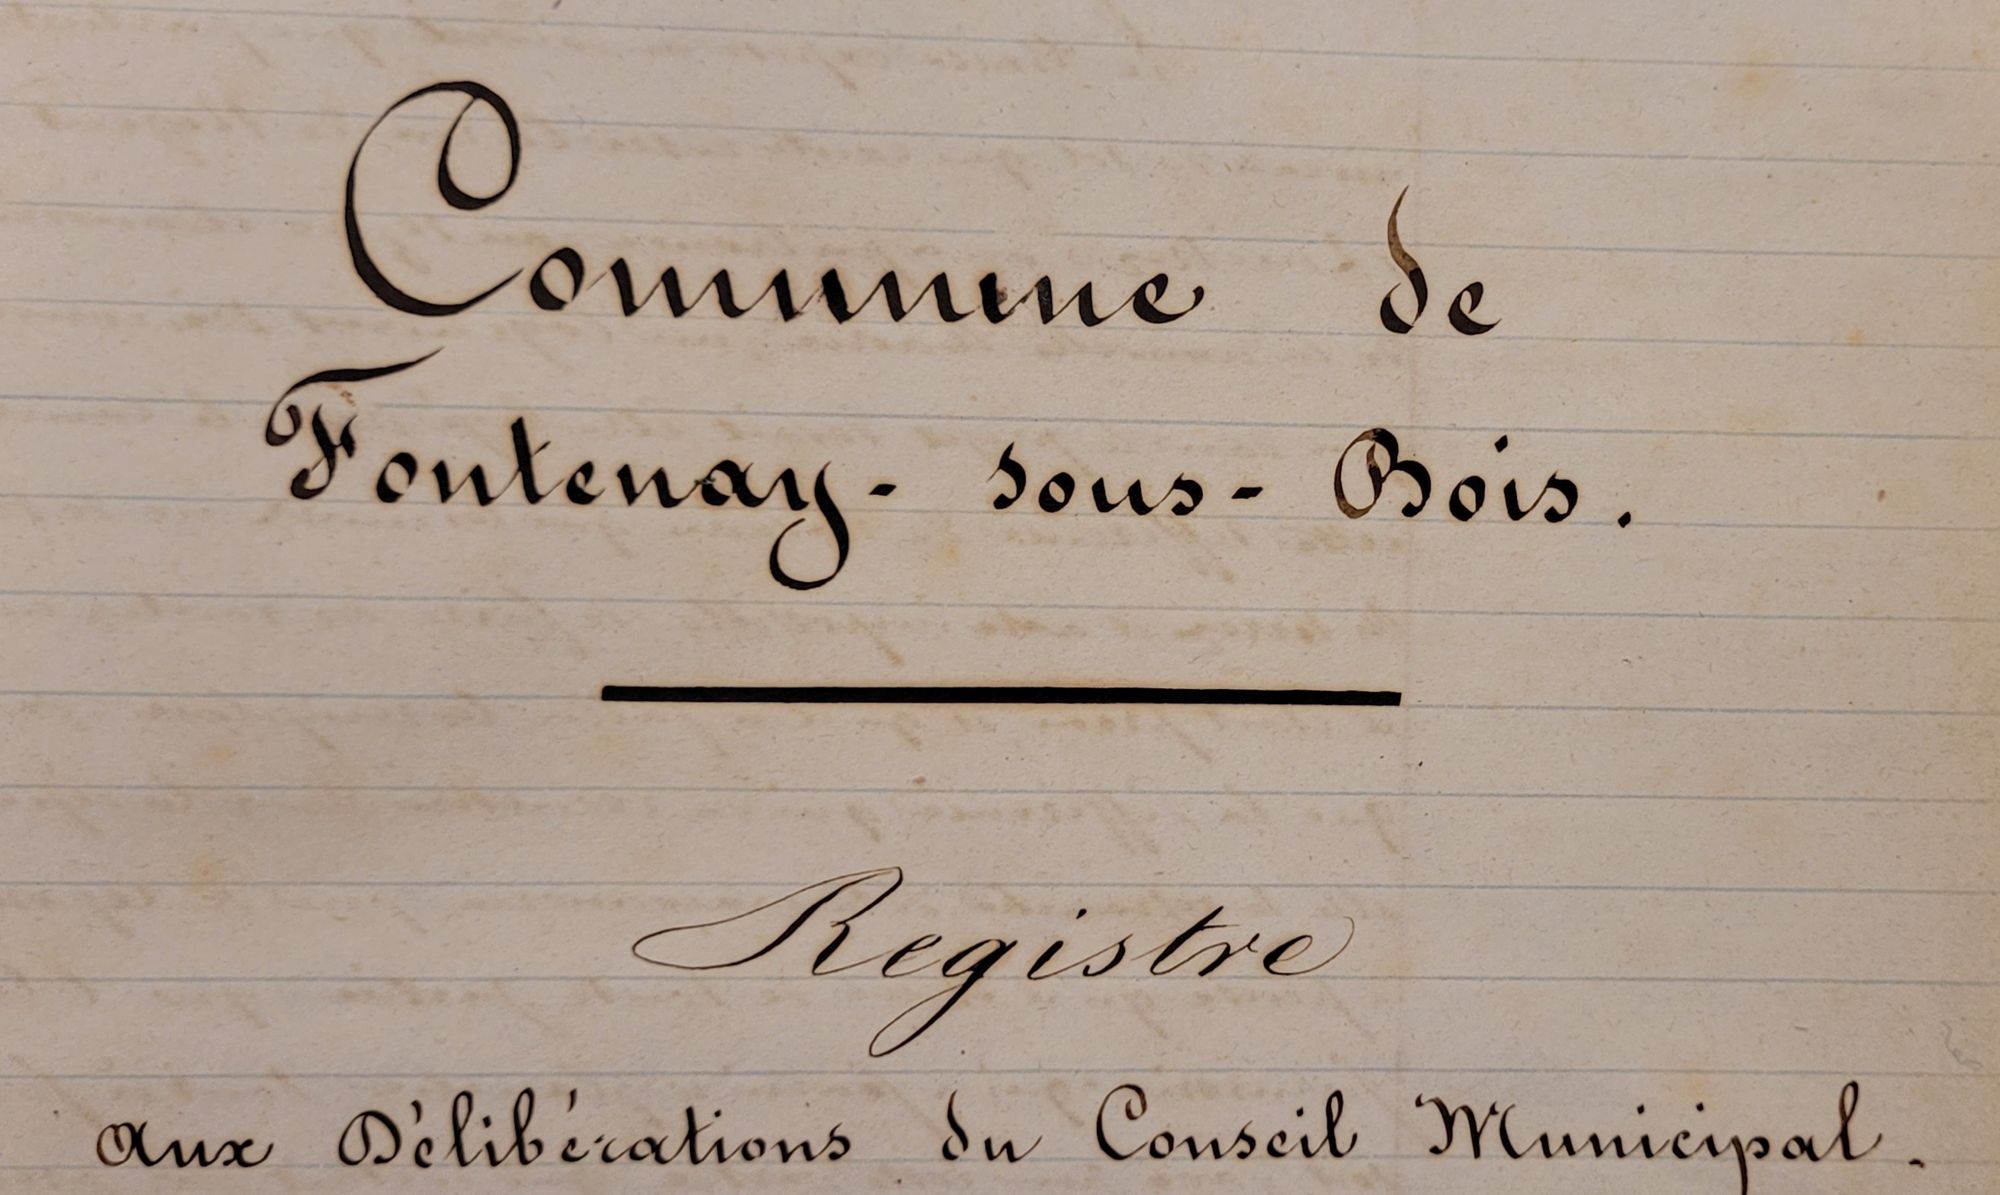 Commune de
Fontenay-sous-Bois.
Registre
aux Délibérations du Conseil Municipal.